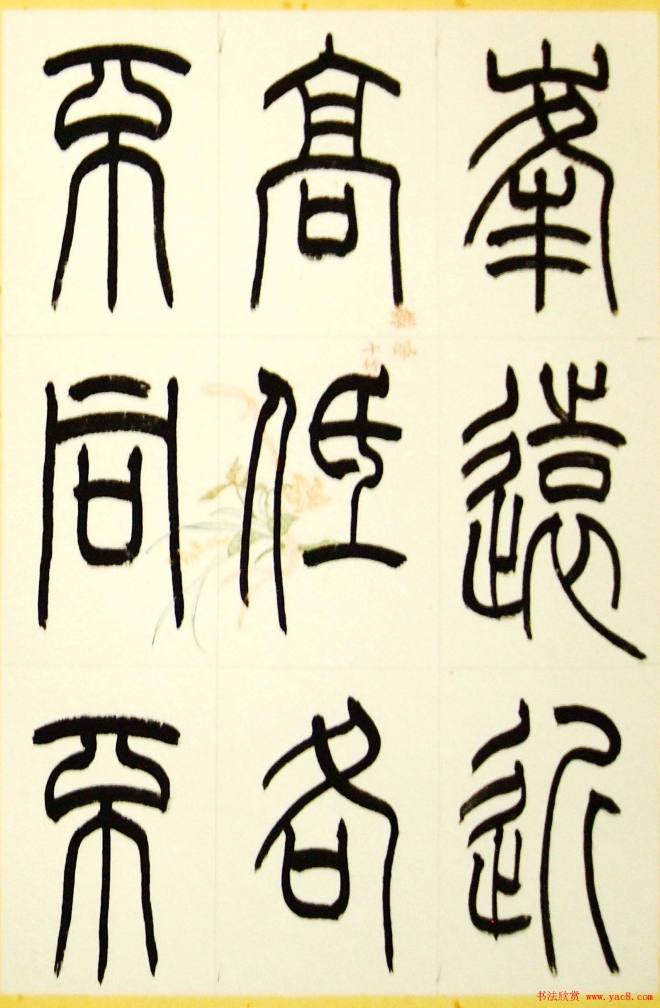 峯遠近
高低各
不同不
书法欣赏 www.yac8.com